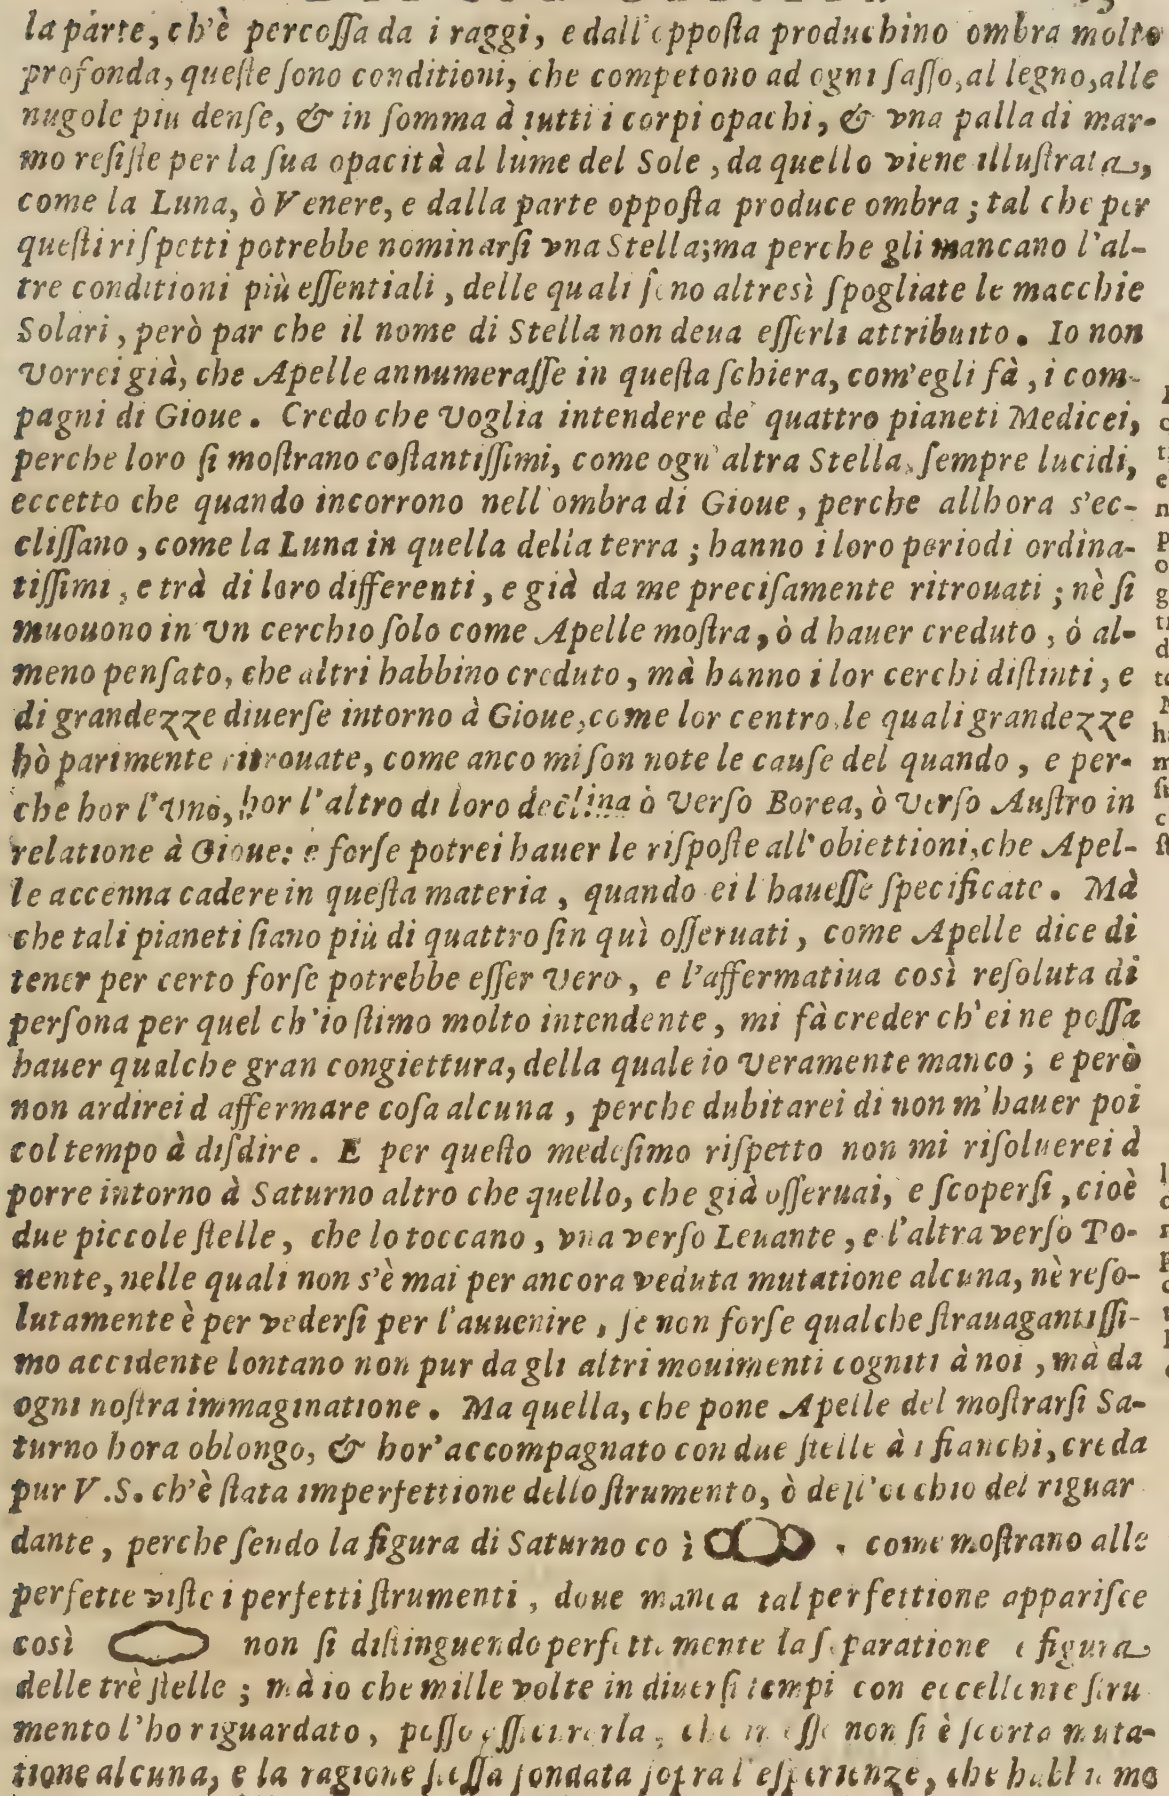 la parte, ch'è percoſſa da i raggi, e dall'oppoſta produchino ombra molto
profonda, queſte ſono conditioni, che competono ad ogni ſaſſo, al legno, alle
nugole piu denſe, & in ſomma à tutti i corpi opachi, & vna palla di mar-
mo reſiſte per la ſua opacità al lume del Sole, da quello viene illuſtrata,
come la Luna, ò Venere, e dalla parte oppoſta produce ombra; tal che per
queſti riſpetti potrebbe nominarſi vna Stella; ma perche gli mancano l'al-
tre conditioni più eſſentiali, delle quali ſono altresì ſpogliate le macchie
Solari, però par che il nome di Stella non deua eſſerli attribuito. Io non
vorrei già, che Apelle annumeraſſe in queſta ſchiera, com'egli fà, i com-
pagni di Gioue. Credo che voglia intendere de' quattro pianeti Medicei,
perche loro ſi moſtrano coſtantiſſimi, come ogn'altra Stella, ſempre lucidi,
eccetto che quando incorrono nell'ombra di Gioue, perche allhora s'ec-
cliſſano, come la Luna in quella della terra; hanno i loro periodi ordina-
tiſſimi, e trà di loro differenti, e già da me preciſamente ritrouati; nè ſi
muouono in vn cerchio ſolo come Apelle moſtra, ò d'hauer creduto, ò al-
meno penſato, che altri habbino creduto, mà hanno i lor cerchi diſtinti, e
di grandezze diuerſe intorno à Gioue, come lor centro, le quali grandezze
hò parimente ritrouate, come anco mi ſon note le cauſe del quando, e per-
che hor l'vno, hor l'altro di loro declina ò verſo Borea, ò verſo Auſtro in
relatione à Gioue: e forſe potrei hauer le riſpoſte all'obiettioni, che Apel-
le accenna cadere in queſta materia, quando ei l haueſſe ſpecificate. Mà
che tali pianeti ſiano più di quattro ſin quì oſſeruati, come Apelle dice di
tener per certo forſe potrebbe eſſer vero, e l'affermatiua così reſoluta di
perſona per quel ch'io ſtimo molto intendente, mi fà creder ch'ei ne poſſa
hauer qualche gran congiettura, della quale io veramente manco; e però
non ardirei d'affermare coſa alcuna, perche dubitarei di non m'hauer poi
col tempo à diſdire. E per queſto medeſimo riſpetto non mi riſoluerei à
porre intorno à Saturno altro che quello, che già oſſeruai, e ſcoperſi, cioè
due piccole ſtelle, che lo toccano, vna verſo Leuante, e l'altra verſo Po-
nente, nelle quali non s'è mai per ancora veduta mutatione alcuna, nè reſo-
lutamente è per vederſi per l'auuenire, ſe non forſe qualche ſtrauagantiſſi-
mo accidente lontano non pur da gli altri mouimenti cogniti à noi, mà da
ogni noſtra immaginatione. Ma quella, che pone Apelle del moſtrarſi Sa-
turno hora oblongo, & hor'accompagnato con due ſtelle à i fianchi, creda
pur V.S. ch'è ſtata imperfettione dello ſtrumento, ò dell'occhio del riguar
dante, perche ſendo la figura di Saturno co ì . come moſtrano alle
perfette viſte i perfetti ſtrumenti, doue manca tal perfettione appariſce
così non ſi diſtinguendo perfettamente la ſeparatione e figura
delle trè ſtelle; mà io che mille volte in diuerſi tempi con eccellente ſtru
mento l'ho riguardato, poſſo aſſicurarla, che in eſſo non ſi è ſcorta muta-
tione alcuna, e la ragione ſteſſa fondata ſopra l'eſperienze, che habbiamo